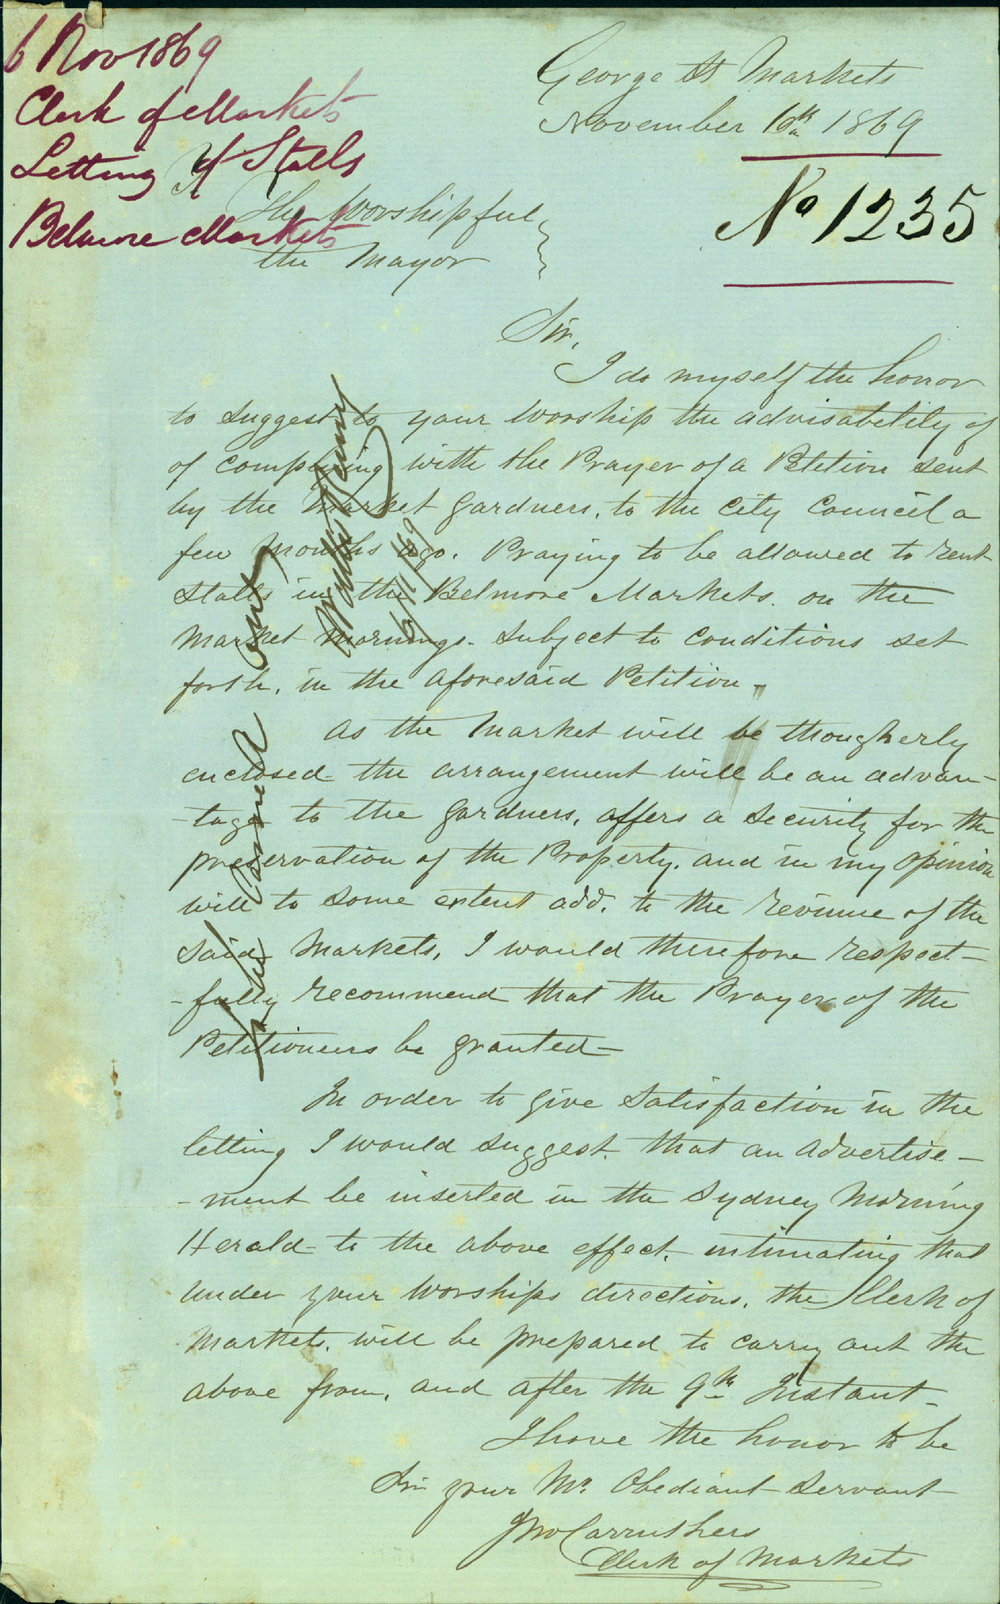 6 Nov 1869
Clerk of Markets
Letting of Stalls
Belmore Markets
George St Markets
November 6th 1869
No 1235
To
The Worshipful
the Mayor
Sir,
I do myself the honor
to suggest to your Worship the advisabelily of
of complying with the Prayer of a Petition sent
by the Market Gardners, to the City Council a
few months ago. Praying to be allowed to rent
Stalls in the Belmore Markets. on the
Market Mornings. Subject to Conditions set
forth, in the aforesaid Petition.
As the Market will be thougherly
enclosed the arrangement will be an advan-
-tage to the Gardners, affers a security for the
preservation of the Property. and in my opinion
will to some extent add. to the revenue of the
said Markets, I would therefore respect-
-fully recommend that the Prayer of the
Petitioners be granted-
In order to give Satisfaction in the
letting I would suggest. that an advertise-
-ment be inserted in the Sydney Morning
Herald- to the above effect. intimating that
under your Worships directions, the Clerk of
Markets. will be prepared to carry out the
above from, and after the 9th Instant-
I have the honor to be
Sir your Mo. Obediant Servant
Jno Carruthers
Clerk of Markets
To be carried out
6/11/69